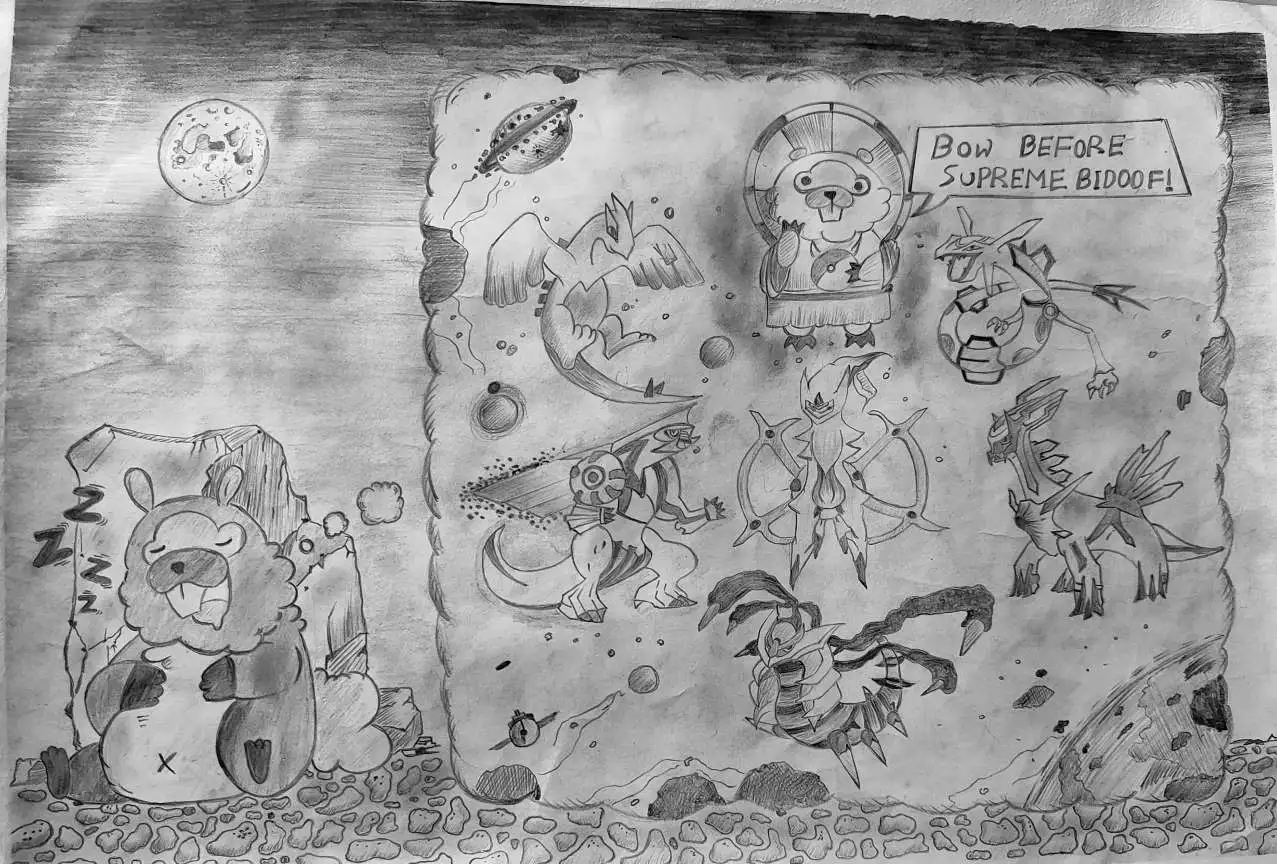 BOW BEFORE
SUPREME BIDOOF!
Z
Z
Z
Z